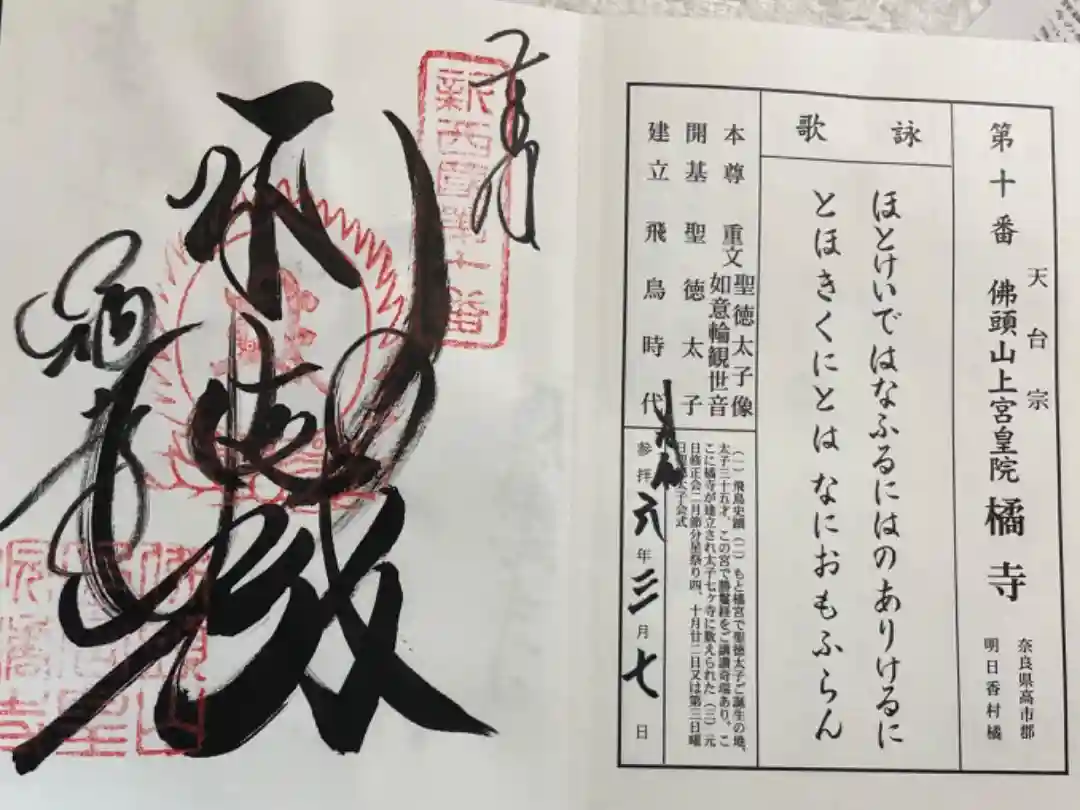 天台宗
第十番 佛頭山上宮皇院 橘寺
奈良県高市郡
明日香村橘
詠歌
ほとけいではなふるにはのありけるに
とほきくにとは なにおもふらん
本尊 重文 聖徳太子像
如意輪観世音
開基 聖徳太子
建立 飛鳥時代
(一)飛鳥史蹟(二)もと橘宮で聖徳太子ご誕生の地、
太子三十五才、この宮で勝鬘経をご講讃奇瑞あり、こ
こに橘寺が建立され太子七ヶ寺に数えられた(三)元
日修正会二月節分星祭り四、十月廿二日又は第三日曜
日聖徳太子会式
参拝 令和六年三月七日
奉拝
新西國第十番
橘寺